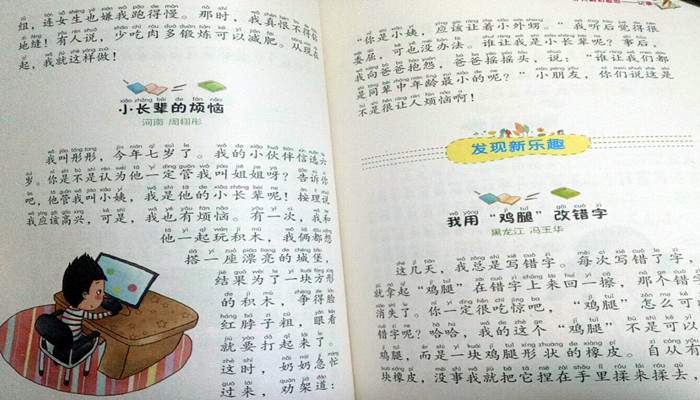 组，连女生也嫌我跑得慢。那时，我真恨不得钻
地缝！有人说，少吃肉多锻炼可以减肥。从现在
起，我就这样做！
小长辈的烦恼
河南 周栩彤
我叫彤彤，今年七岁了。我的小伙伴信选六
岁。你是不是认为他一定管我叫姐姐呀？告诉你
吧，他管我叫小姨，我是他的小长辈呢！按理说
我应该高兴，可是，我也有烦恼。有一次，我和
他一起玩积木，我俩都想
搭一座漂亮的城堡，
结果为了一块方形
的积木，争得脸
红脖子粗，眼看
就要打起来了。
这时，奶奶急忙
过来，劝架道：
“你是小姨，应该让着小外甥。”我听后觉得很
委屈，可也没办法。谁让我是小长辈呢？事后，
我向爸爸抱怨，爸爸摇摇头，说：“谁让我们都
是同辈中年龄最小的呢？”小朋友，你们说这是
不是很让人烦恼啊！
发现新乐趣
我用“鸡腿”改错字
黑龙江 冯玉华
这几天，我总是写错字。每次写错了字，
就拿起“鸡腿”在错字上来回一擦，那个错字
消失了。你一定很吃惊吧，“鸡腿”怎么可
错字呢？哈哈，我的这个“鸡腿”不是可以
鸡腿，而是一块鸡腿形状的橡皮。自从有
块橡皮，没事我就把它捏在手里揉来揉去，